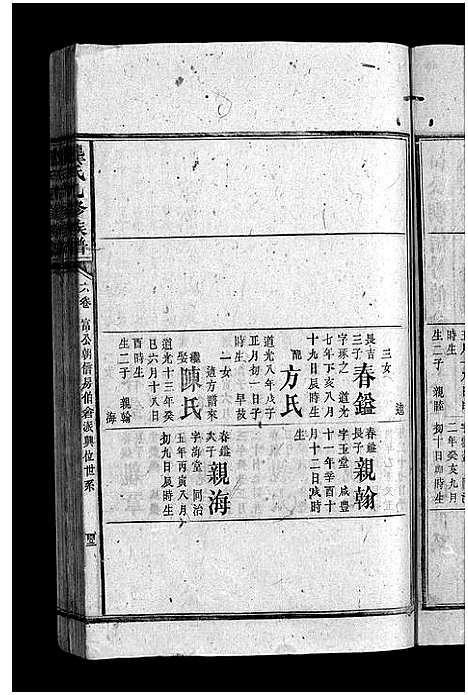 三女 適
長吉三子 春鎰
字琢之 道光
七年丁亥八月
十九日辰時生
配 方氏 生
道光八年戊子
正月初一日子
時生 早故
一女
適方譜來
繼娶 陳氏
道光十三年癸
巳六月十八日
酉時生
生二子 親翰
海
春鎰長子 親翰
字玉堂 咸豐
十一年辛酉十
月十二日戌時
春鎰次子 親海
字海堂 同治
五年丙寅八月
初九日辰時生
氏九修族譜
六卷
富公朝僧房伯會派興位世系
生子 親睦
二年癸亥九
初十日卯時